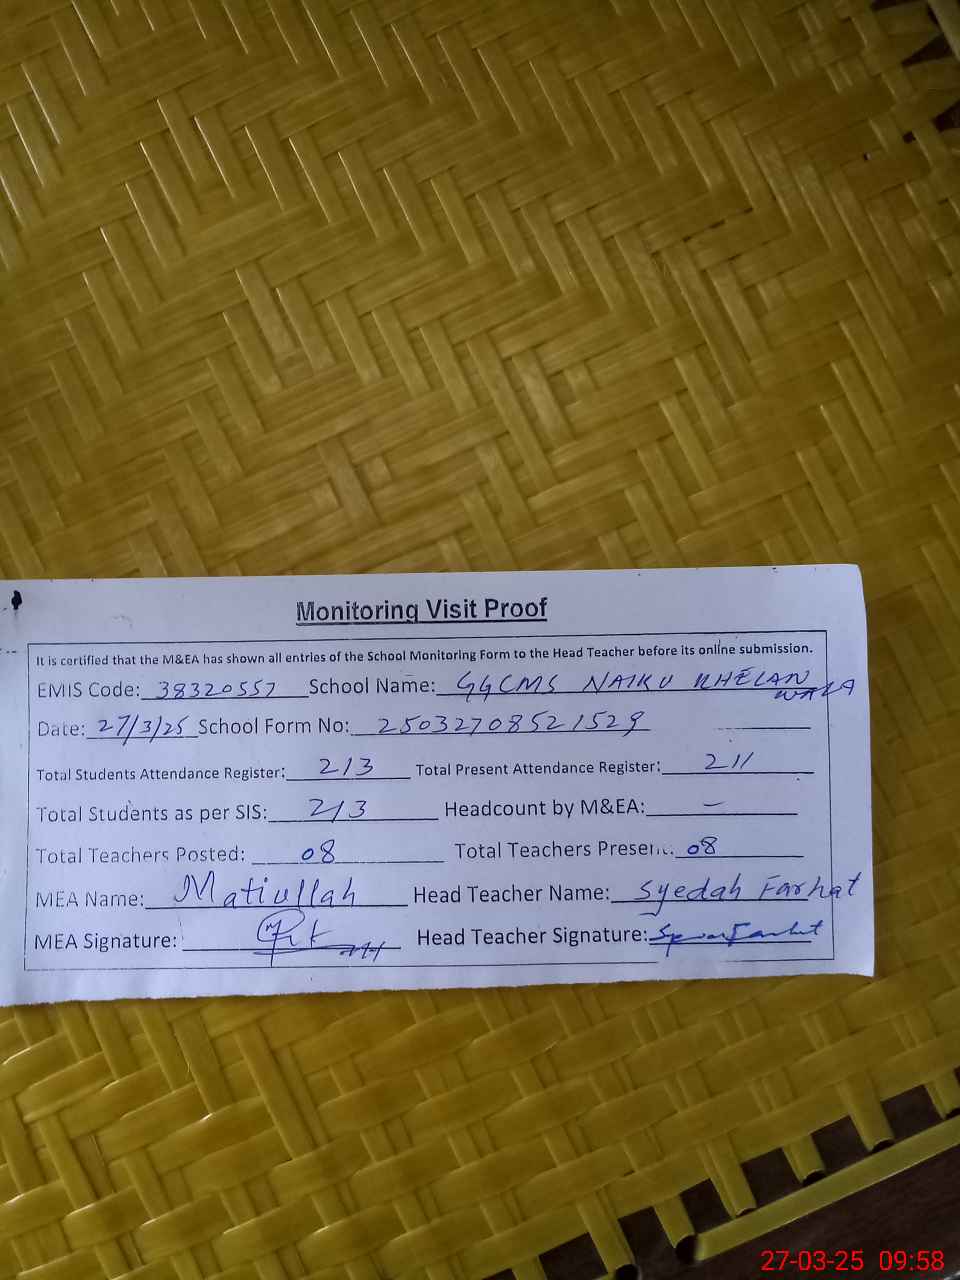 Monitoring Visit Proof
It is certified that the M&EA has shown all entries of the School Monitoring Form to the Head Teacher before its online submission.
EMIS Code: 38320557 School Name: GGCMS NAIKU KHELAN WALA
Date: 27/3/25 School Form No: 25032708521529
Total Students Attendance Register: 213 Total Present Attendance Register: 211
Total Students as per SIS: 213 Headcount by M&EA: —
Total Teachers Posted: 08 Total Teachers Present: 08
MEA Name: Matiullah Head Teacher Name: Syedah Farhat
MEA Signature: Head Teacher Signature:
27-03-25 09:58